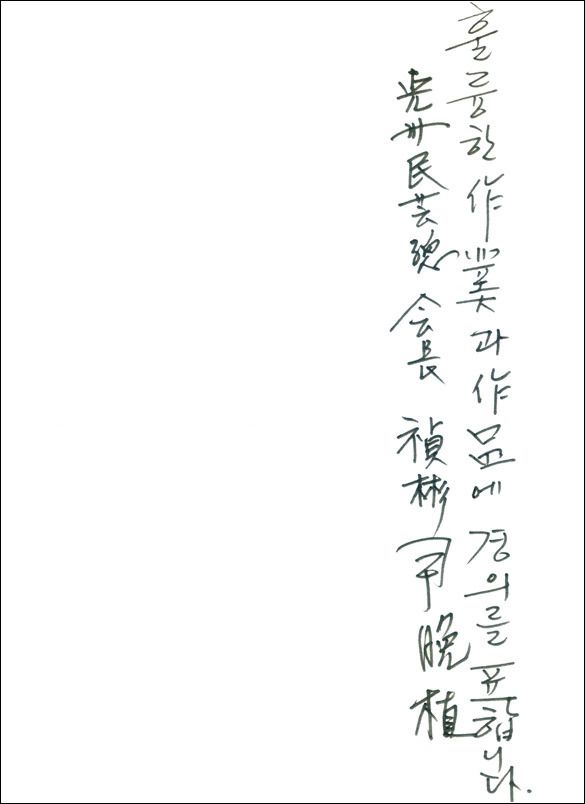 훌륭한 作業과 作品에 경의를 표합니다.
光州民芸總 会長 禎彬 尹晩植